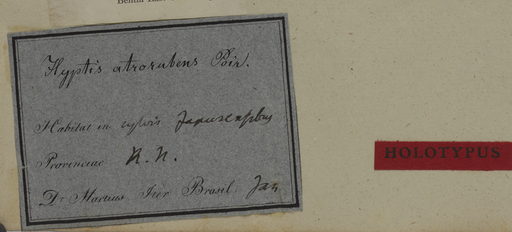 Hyptis atrorubens Poir.
Habitat in sylvis
Provinciae R. N.
Dr Martius Iter Brasil. Jan
HOLOTYPUS